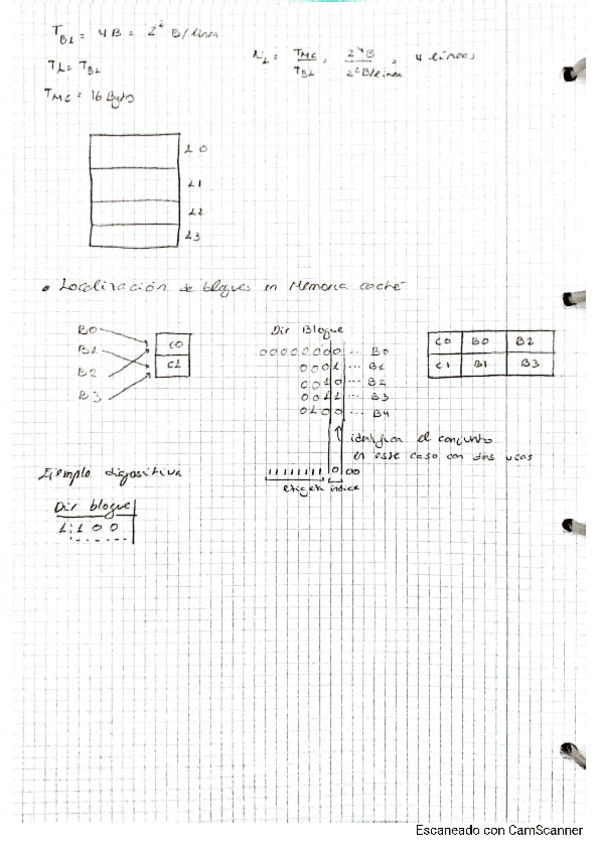 T_BL = 4B = 2² B/línea
T_L = T_BL
T_MC = 16 Byts
N_L = T_MC / T_BL = 2⁴B / 2²B/línea = 4 líneas
L0
L1
L2
L3
• Localización de bloques en Memoria caché
B0
B1
B2
B3
C0
C1
Dir Bloque
00000000 ... B0
0001 ... B1
0010 ... B2
0011 ... B3
0100 ... B4
C0 B0 B2
C1 B1 B3
identifica el conjunto
en este caso con dos vias
Ejemplo diapositiva
11111111 0 00
etiqueta índice
Dir bloque
1:100
Escaneado con CamScanner